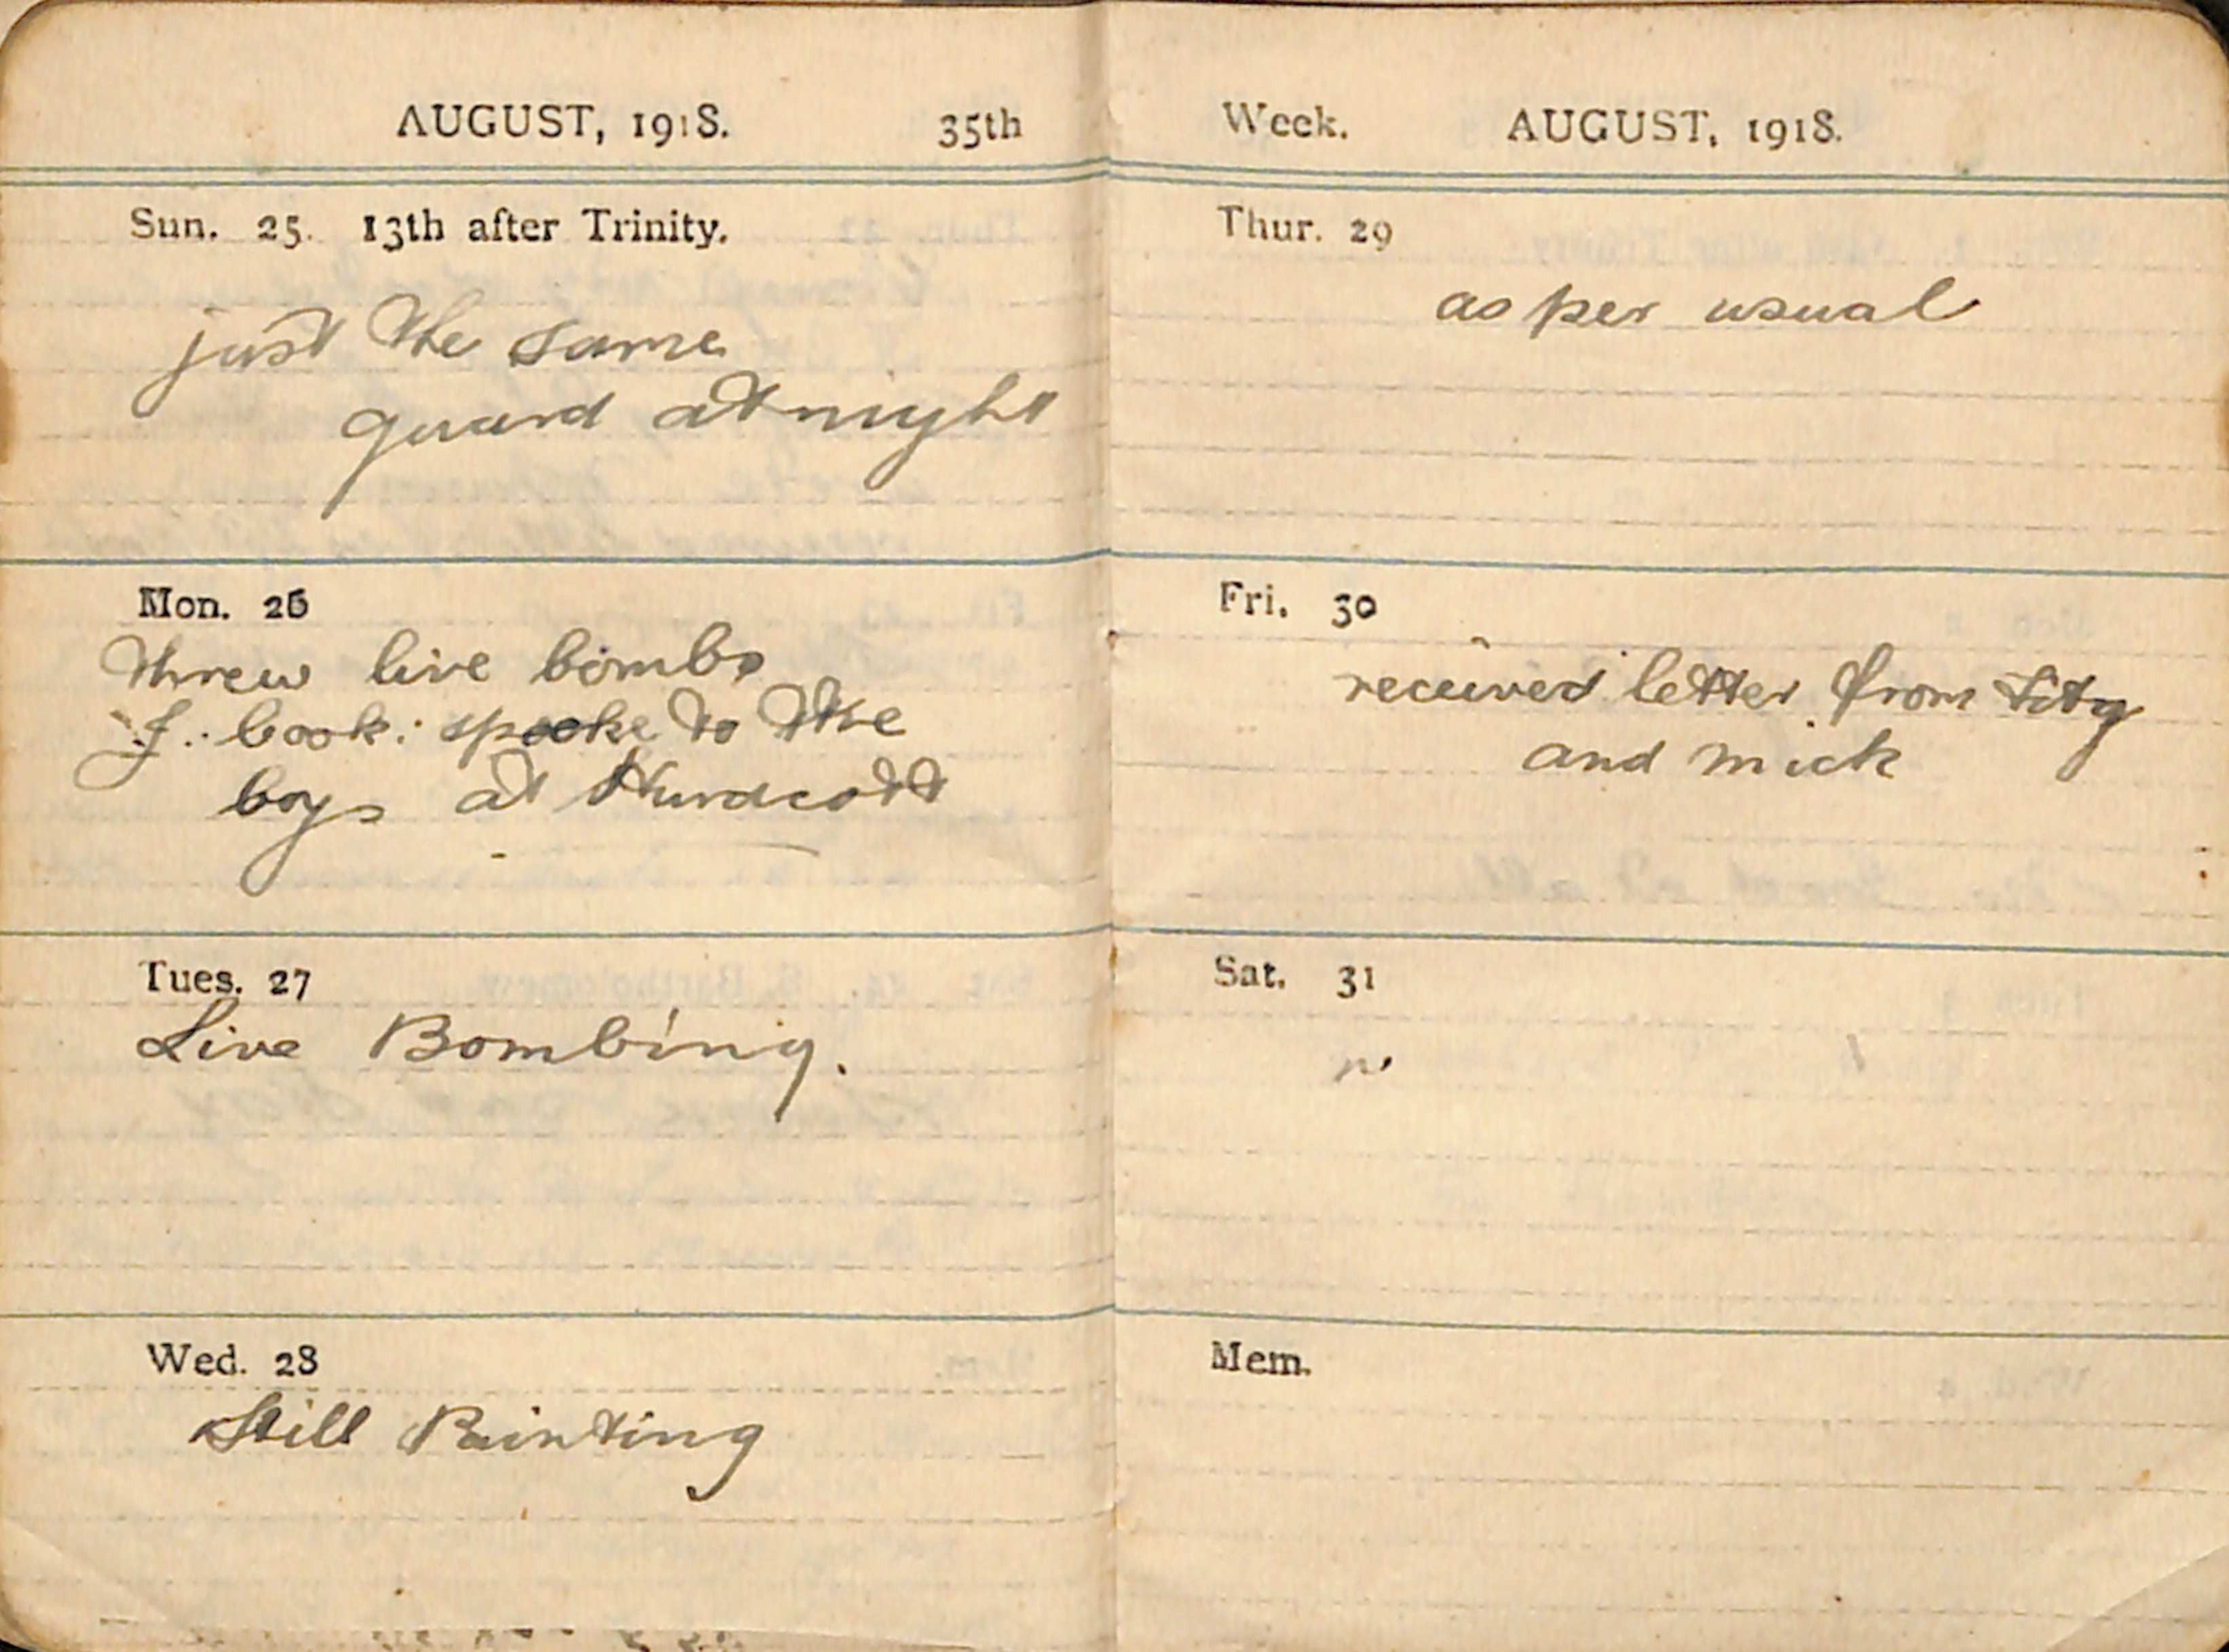 AUGUST, 1918. 35th
Sun. 25. 13th after Trinity.
just the same
guard at night
Mon. 26
threw live bombs
J. book: spoke to the
boys at Hurdcott
Tues. 27
Live Bombing.
Wed. 28
Still Painting
Week. AUGUST, 1918.
Thur. 29
as per usual
Fri. 30
received letter from
and mick
Sat. 31
Mem.